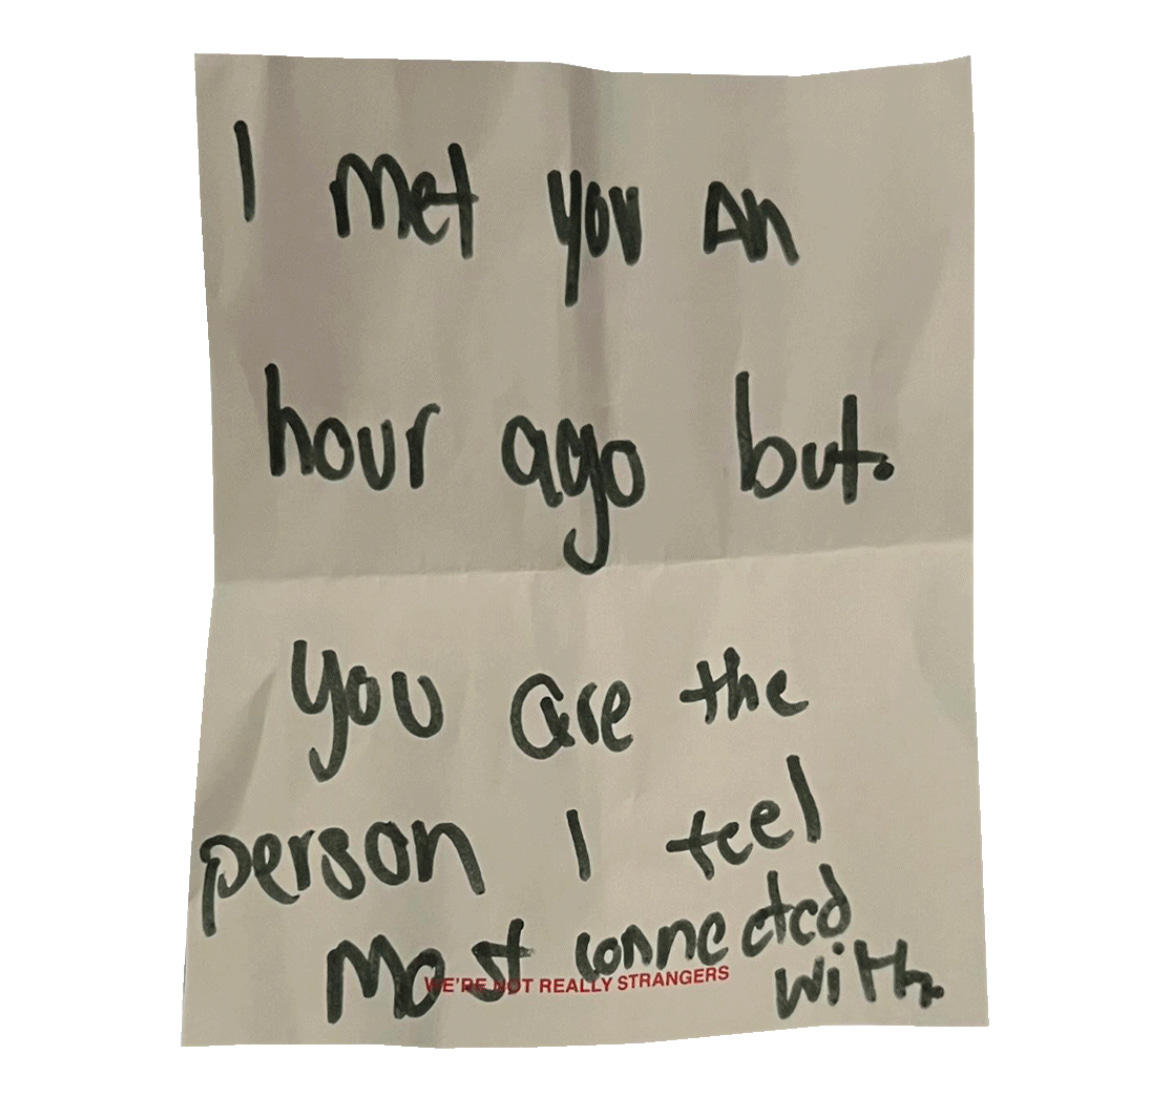 I met you an
hour ago but.
you are the
person I feel
most connected
with.
WE'RE NOT REALLY STRANGERS